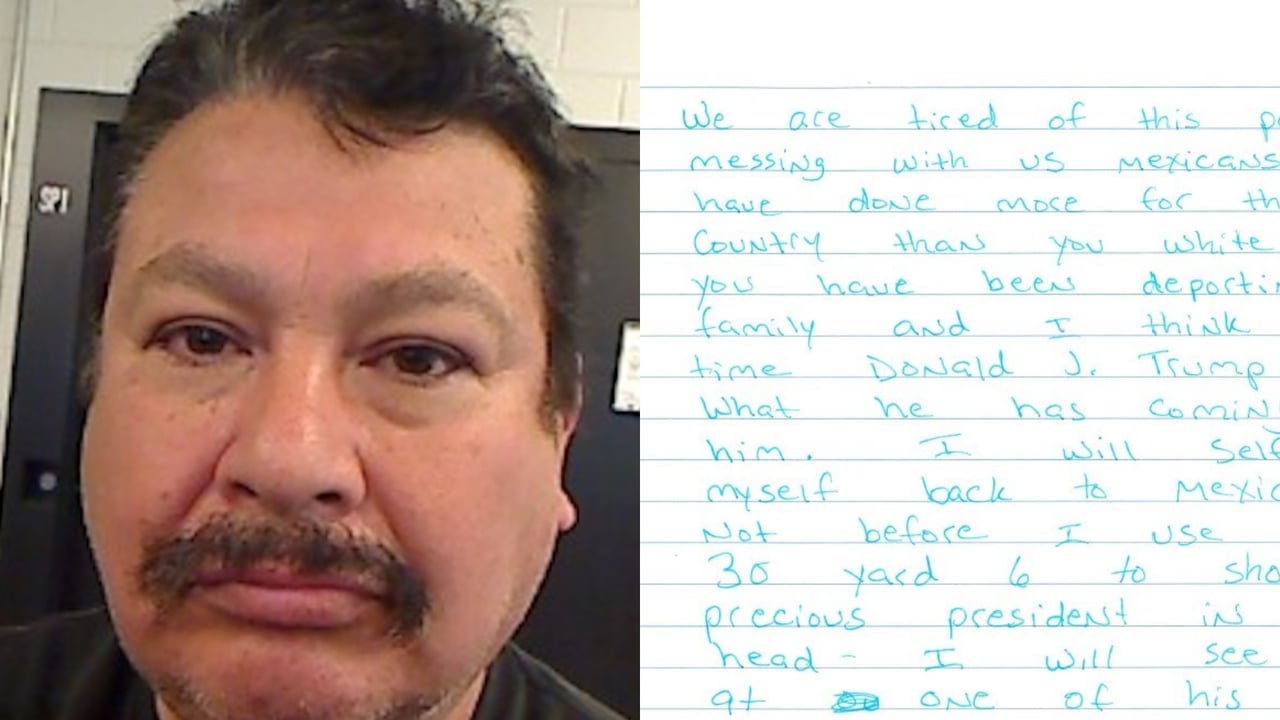 SPI
We are tired of this
messing with us mexicans
have done more for
Country than you white
you have been
family and I think
time Donald J. Trump
What he has
him. I will
myself back to
Not before I use
30 yard 6 to
precious president in
head - I will see
at one of his